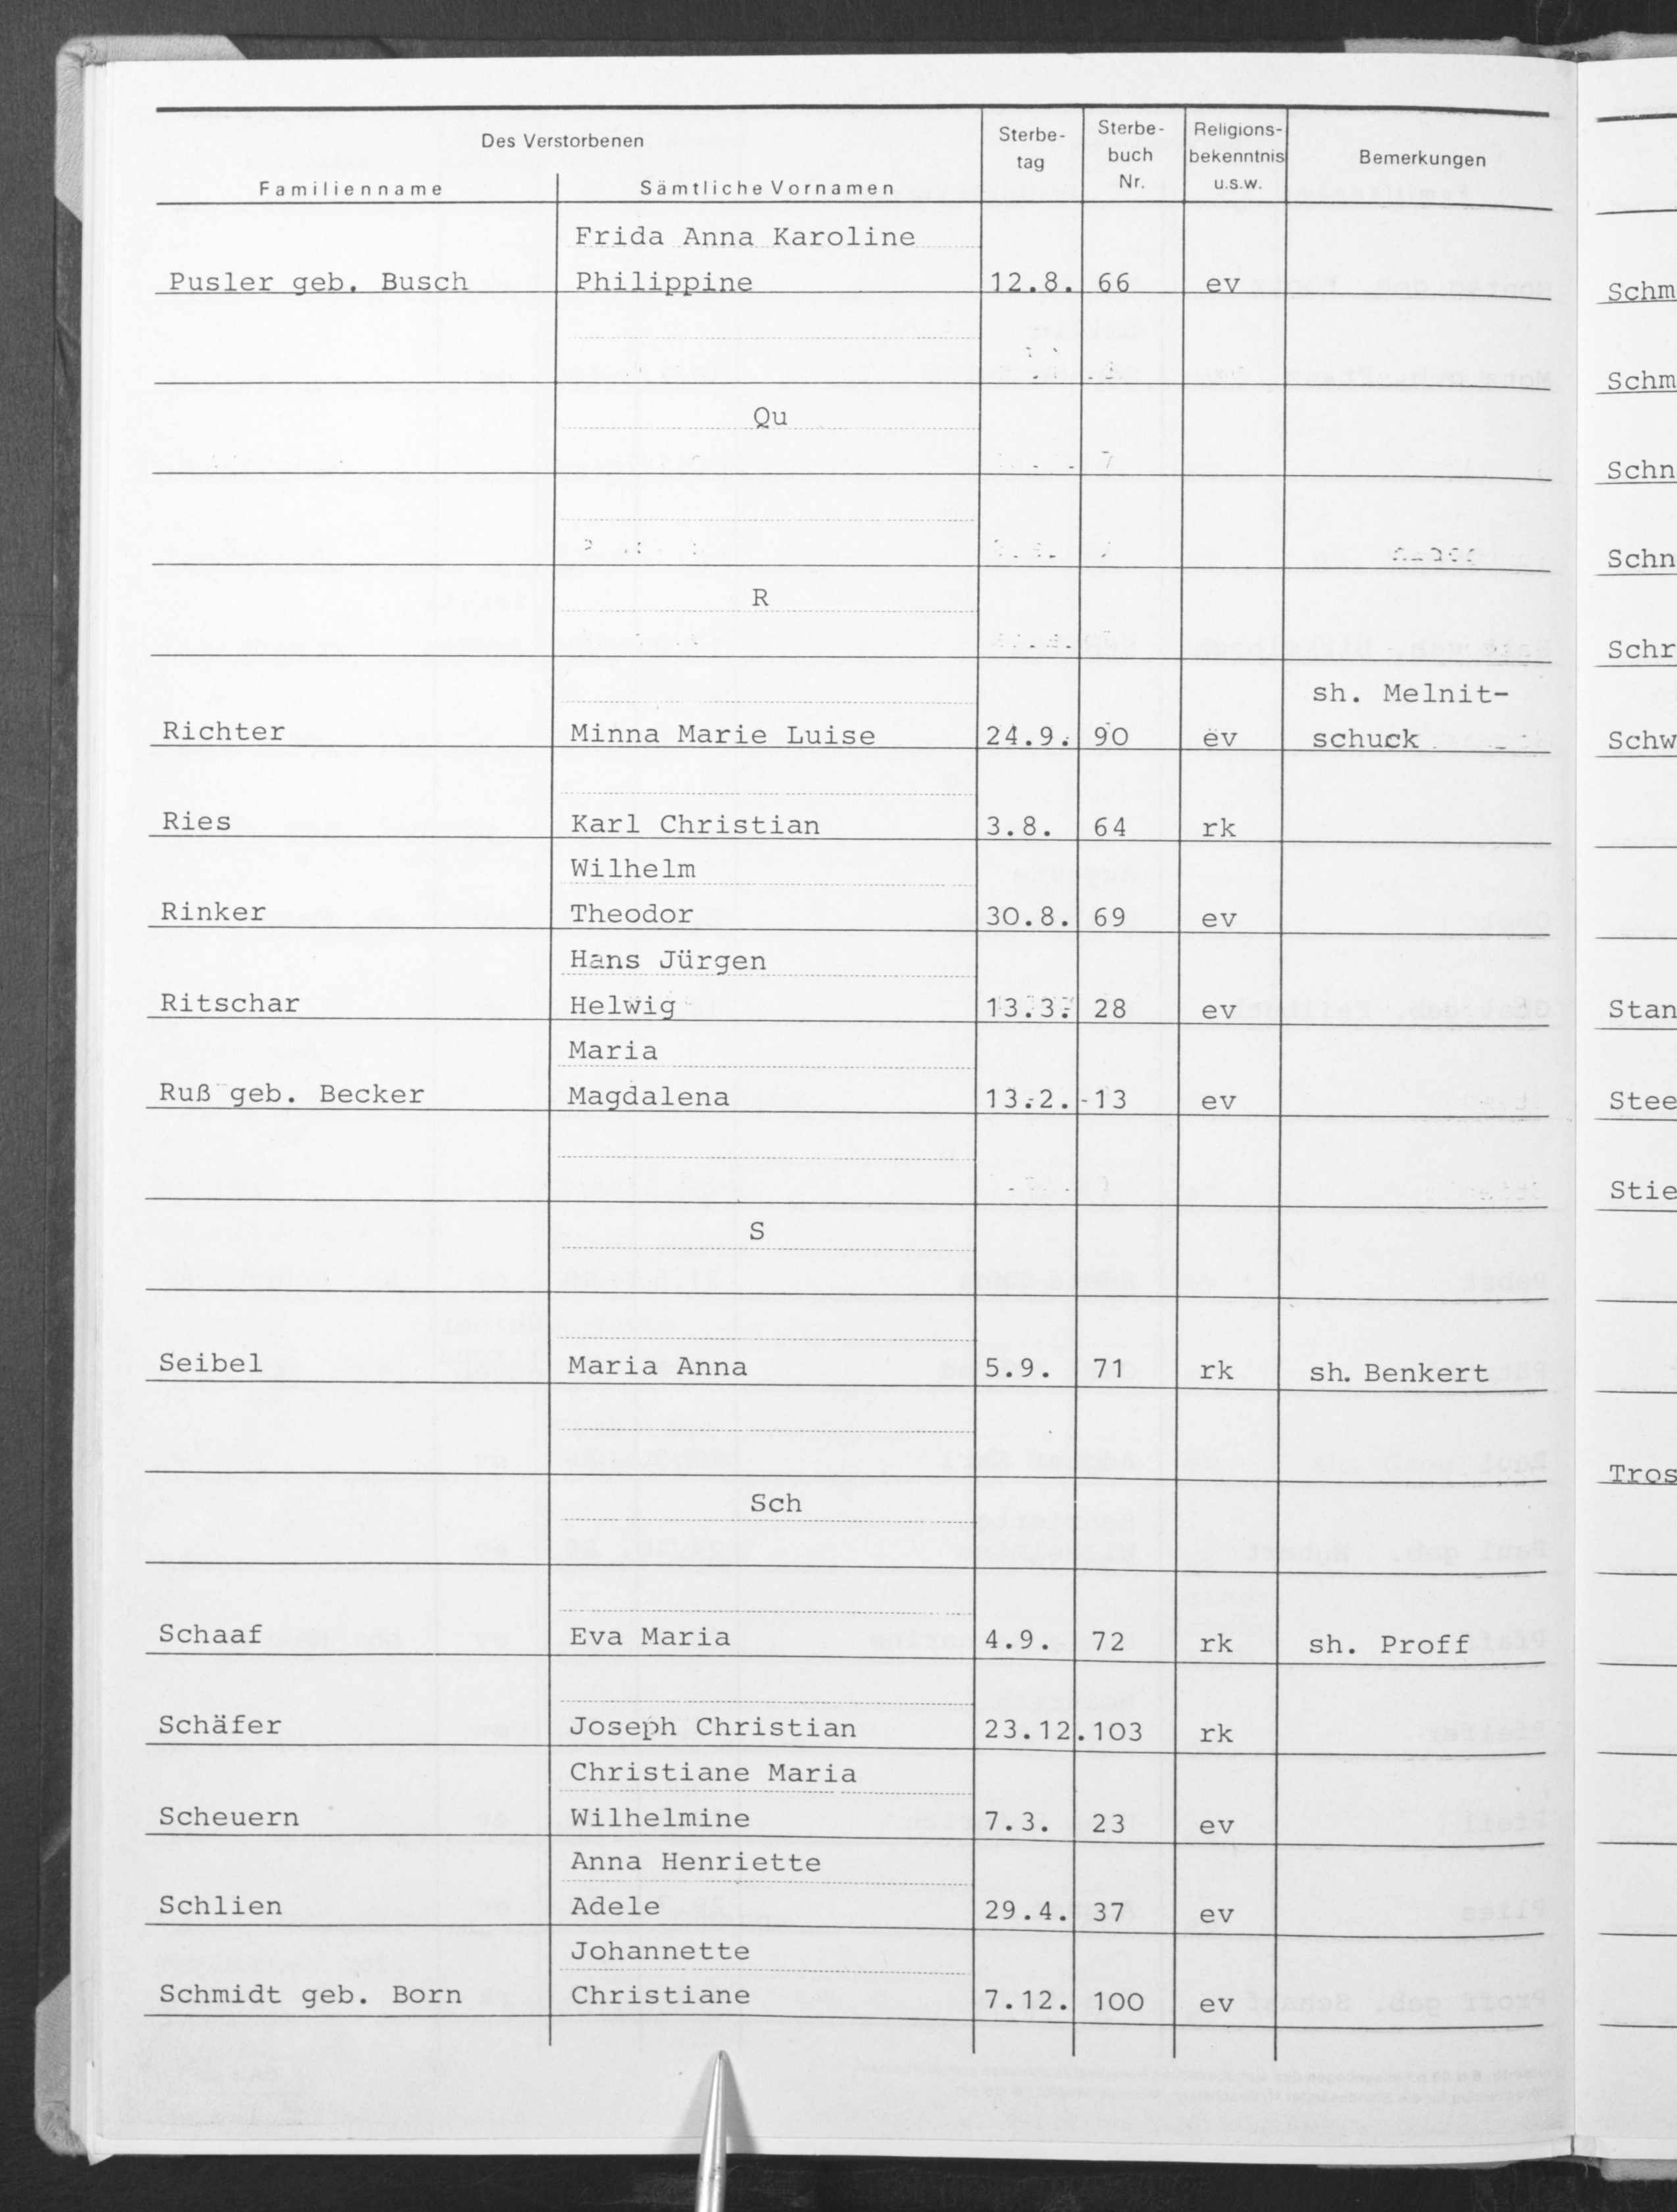 Des Verstorbenen
Familienname Sämtliche Vornamen
Sterbe-
tag
Sterbe-
buch
Nr.
Religions-
bekenntnis
u.s.w.
Bemerkungen
Frida Anna Karoline
Pusler geb. Busch Philippine 12.8. 66 ev
Qu
R
sh. Melnit-
Richter Minna Marie Luise 24.9. 90 ev schuck
Ries Karl Christian 3.8. 64 rk
Wilhelm
Rinker Theodor 30.8. 69 ev
Hans Jürgen
Ritschar Helwig 13.3. 28 ev
Maria
Ruß geb. Becker Magdalena 13.2. 13 ev
S
Seibel Maria Anna 5.9. 71 rk sh. Benkert
Sch
Schaaf Eva Maria 4.9. 72 rk sh. Proff
Schäfer Joseph Christian 23.12. 103 rk
Christiane Maria
Scheuern Wilhelmine 7.3. 23 ev
Anna Henriette
Schlien Adele 29.4. 37 ev
Johannette
Schmidt geb. Born Christiane 7.12. 100 ev
Schm
Schm
Schn
Schn
Schr
Schw
Stan
Stee
Stie
Tros